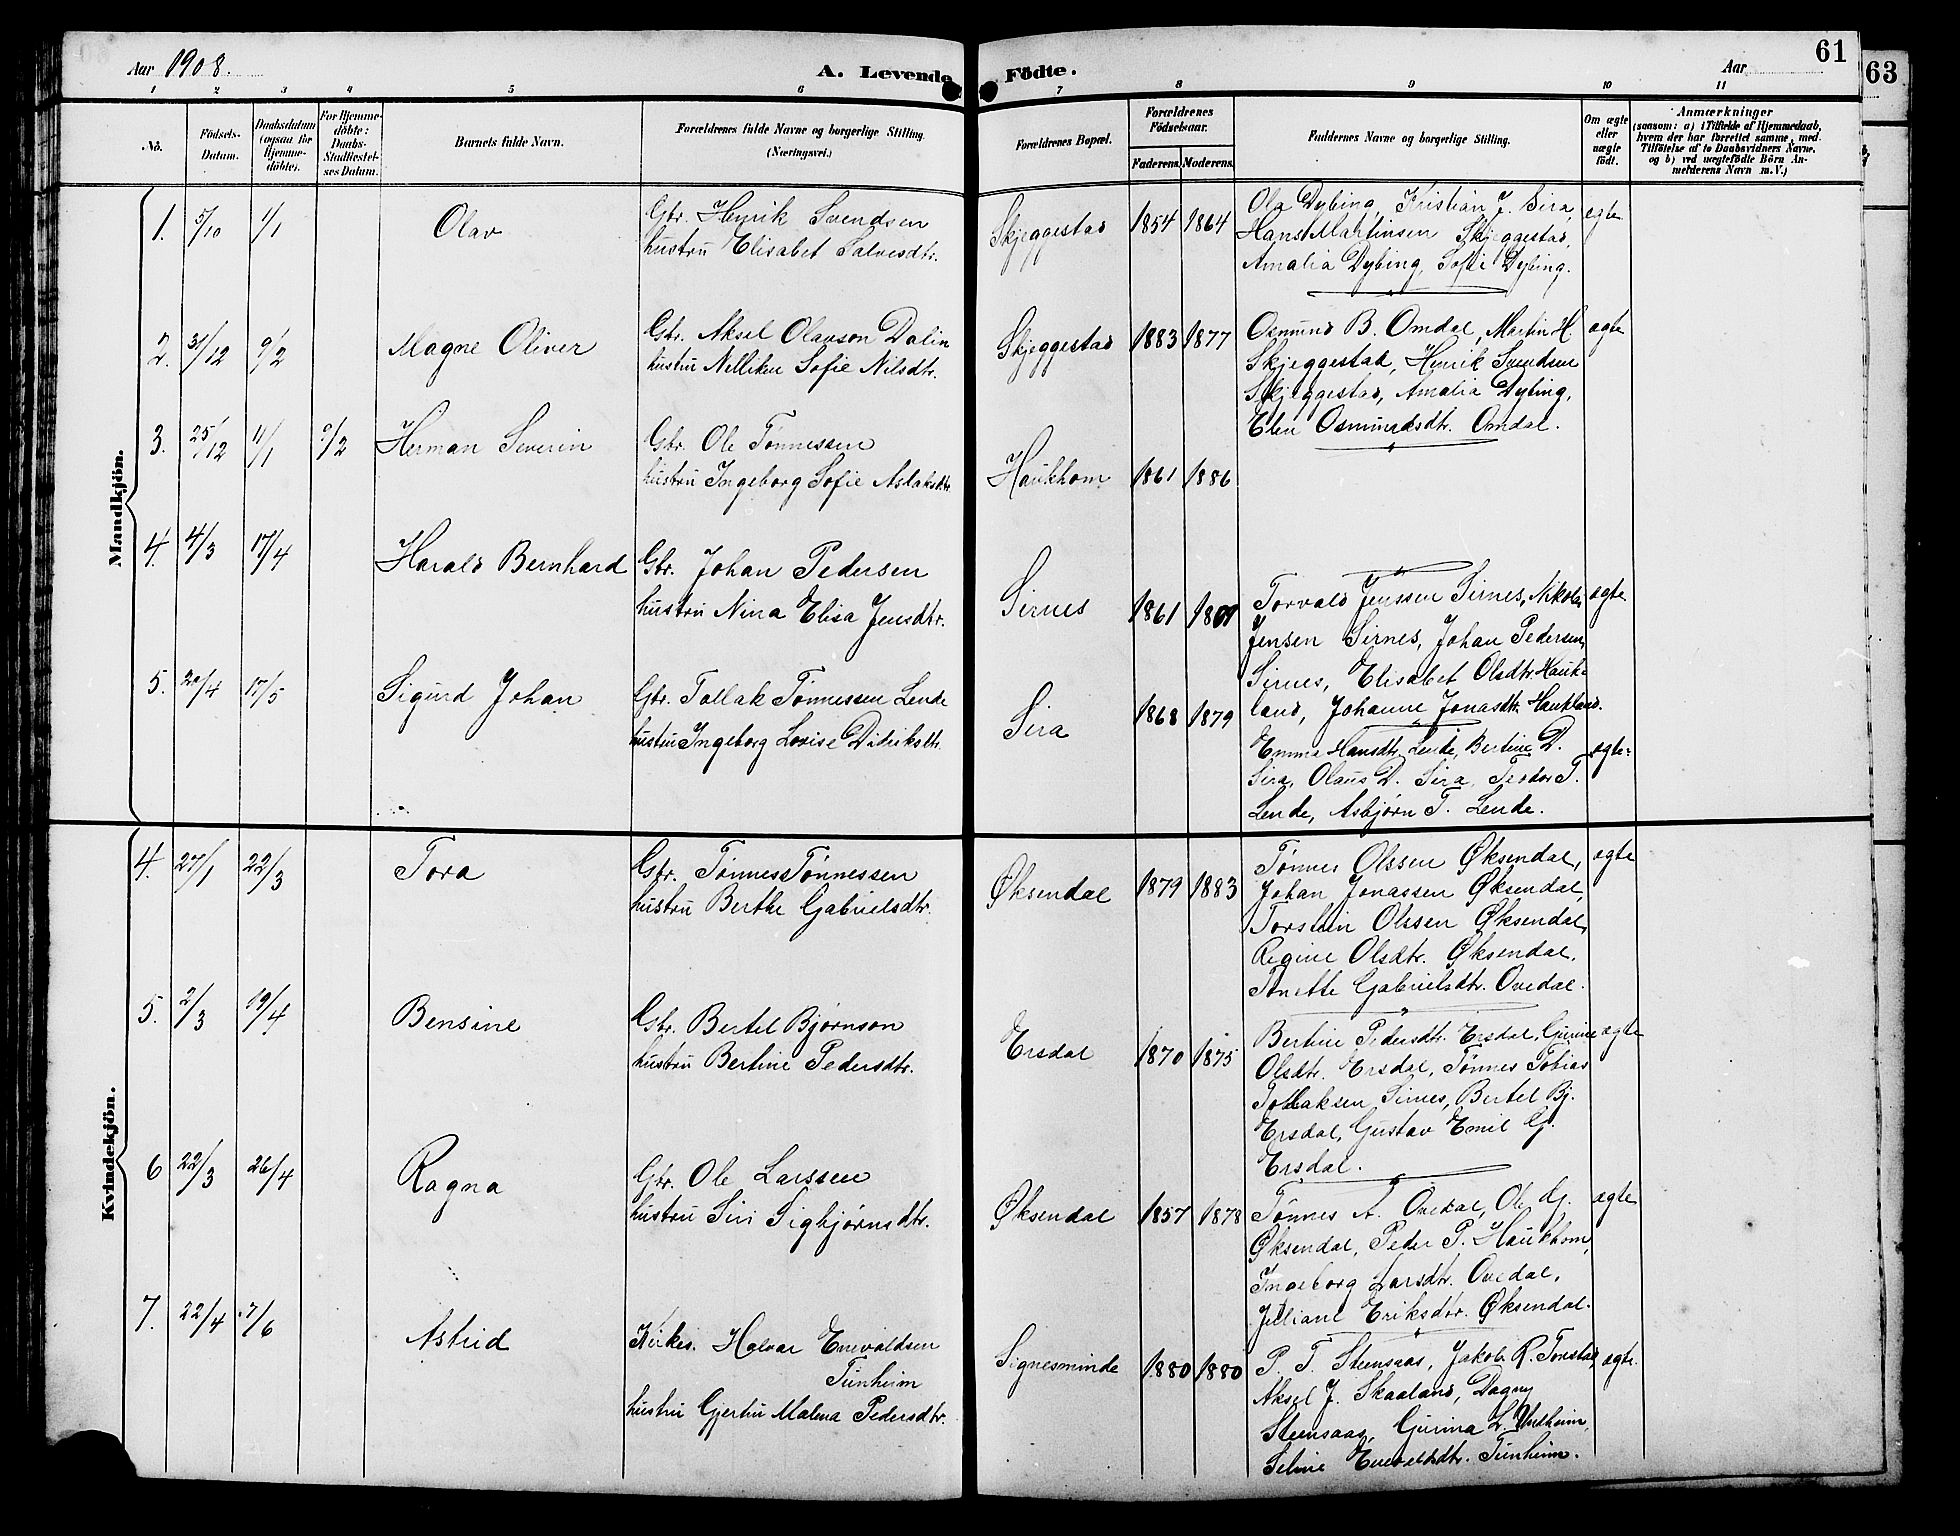 Aar 1908.
A. Levende Födte.
Aar
61
63
1 2 3 4 5 6 7 8 9 10 11
No.
Födsels-
Datum.
Daabsdatum
(ogsaa for
Hjemme-
döbte).
For Hjemme-
döbte:
Daabs-
Stadfæstel-
ses Datum.
Barnets fulde Navn.
Forældrenes fulde Navne og borgerlige Stilling.
(Næringsvei.)
Forældrenes Bopæl.
Forældrenes
Födselsaar.
Faderens. Moderens.
Faddernes Navne og borgerlige Stilling.
Om ægte
eller
uægte
födt.
Anmærkninger
(saasom: a) i Tilfælde af Hjemmedaab,
hvem der har forrettet samme, med
Tilföielse af to Daabsvidners Navne,
og b) ved uægtefödte Börn An-
melderens Navn m. V.)
Mandkjön.
1. 5/10 1/1 Olav
Gbr. Henrik Svendsen
hustru Elisabet Salvesdtr.
Skjeggestad 1854 1864
Ola Dybing, Kristian J. Sira,
Hans Martinsen Skjeggestad,
Amalia Dybing, Sofie Dybing.
ægte
2. 31/12 9/2 Magne Oliver
Gbr. Aksel Olavson Dalin
hustru Nelliken Sofie Nilsdtr.
Skjeggestad 1883 1877
Osmund B. Omdal, Martin H.
Skjeggestad, Henrik Svendsen
Skjeggestad, Amalia Dybing,
Elen Osmundsdtr. Omdal.
ægte
3. 25/12 11/1 9/2 Herman Severin
Gbr. Ole Tønnessen
hustru Ingeborg Sofie Aslaksdtr.
Haukhom 1861 1886
4. 4/3 17/4 Harald Bernhard
Gbr. Johan Pedersen
hustru Nina Elisa Jensdtr.
Sirnes 1861
Torvald Jenssen Sirnes, Nikolai
Jensen Sirnes, Johan Pedersen
Sirnes, Elisabet Olsdtr. Hauk-
land, Johanne Jonasdtr. Haukland.
ægte
5. 20/4 17/5 Sigurd Johan
Gbr. Tollak Tønnessen Lende
hustru Ingeborg Lovise Didriksdtr.
Sira 1868 1879
Emma Hansdtr. Lende, Bertine D.
Sira, Olaus D. Sira, Teodor T.
Lende, Asbjørn T. Lende.
ægte
Kvindekjön.
4. 27/1 22/3 Tora
Gbr. Tønnes Tønnessen
hustru Berthe Gabrielsdtr.
Øksendal 1879 1883
Tønnes Olssen Øksendal,
Johan Jonassen Øksendal,
Torstein Olssen Øksendal,
Regine Olsdtr. Øksendal.
Tonette Gabrielsdtr. Ovedal.
ægte
5. 2/3 19/4 Bensine
Gbr. Bertel Bjørnson
hustru Bertine Pedersdtr.
Ersdal 1870 1875
Bertine Pedersdtr. Ersdal, Gurine
Olsdtr. Ersdal, Tønnes Tobias
Tollaksen Sirnes, Bertel Bj.
Ersdal, Gustav Emil G.
Ersdal.
ægte
6 22/3 26/4 Ragna
Gbr. Ole Larssen
hustru Siri Sigbjørnsdtr.
Øksendal 1857 1878
Tønnes A. Ovedal, Ole G.
Øksendal, Peder P. Haukhom,
Ingeborg Larsdtr. Ovedal,
Jelliane Eriksdtr. Øksendal.
ægte
7. 22/4 7/6 Astrid
Kirkes. Halvar Enevaldsen
Tunheim
hustru Gjertru Malena Pedersdtr.
Signesminde 1880 1880
P. T. Steensaas, Jakob R. Tonstad
Aksel J. Skaaland, Dagny
Steensaas, Gurina L.
Seline Enevaldsdtr. Tunheim.
ægte.